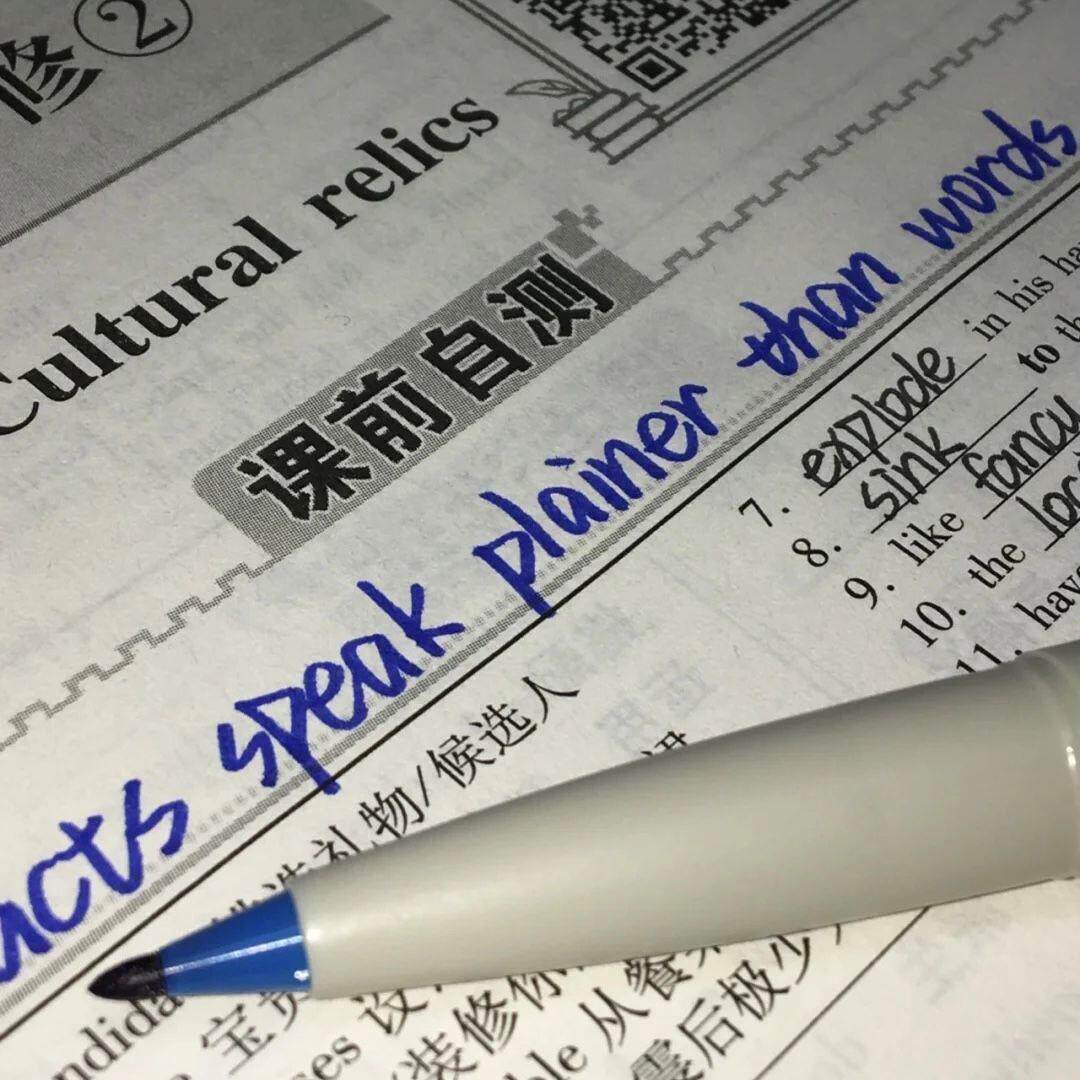 修②
Cultural relics
课前自测
acts speak plainer than words
7. explode in his
8. sink to
9. like fancy
10. the
11. have
物/候选人
宝贵
设
装修你
从餐
后极少